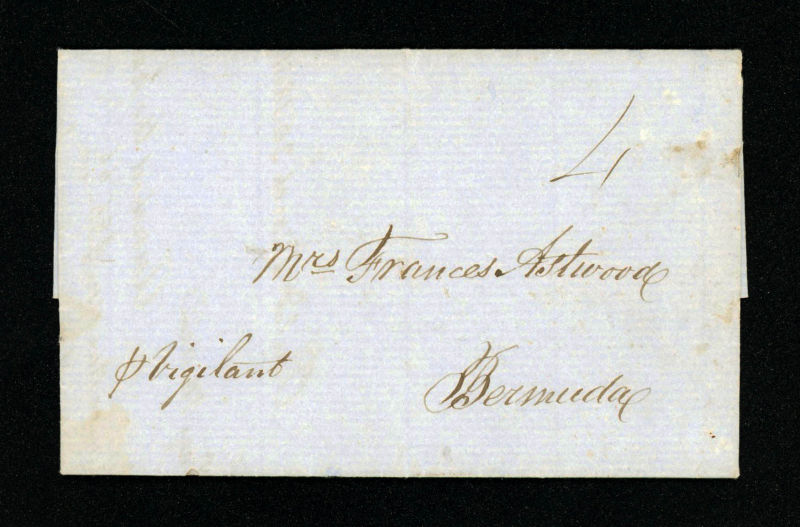 4
Mrs Frances Astwood
p Vigilant
Bermuda